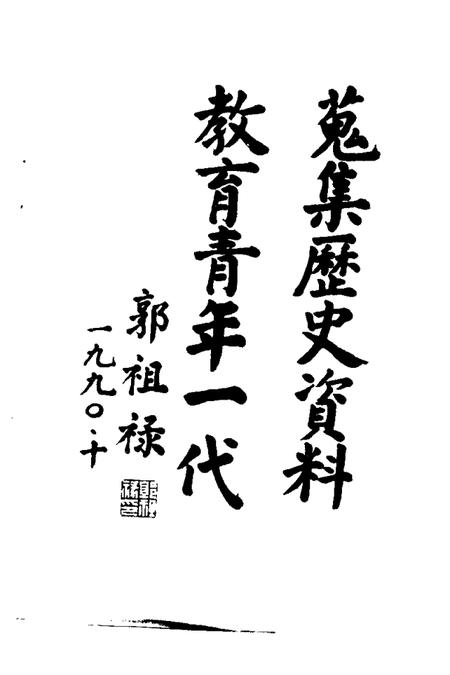 蒐集歷史資料
教育青年一代
郭祖禄
一九九〇.十